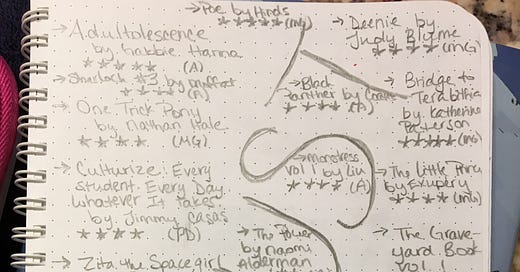 → Adultolescence
by Gabbie Hanna
★★★★★ (A)
→ Sherlock #3 by Moffat
★★★★ (A)
→ One Trick Pony
by Nathan Hale
★★★★ (MG)
→ Culturize: Every
student. Every Day.
Whatever It Takes
by Jimmy Casas
★★★★ (PD)
→ Zita the Spacegirl
→ Poe by Hinds
★★★★★ (MG)
→ Black
Panther by
★★★★
→ Monstress
vol 1 by Liu
★★★★ (A)
→ The Power
by Naomi
Alderman
→ Deenie by
Judy Blume
★★★★ (MG)
→ Bridge to
Terabithia
by Katherine
Patterson
★★★★★ (MG)
→ The Little Prince
by Exupery
★★★★ (MG)
→ The Grave-
yard Book
vol 1